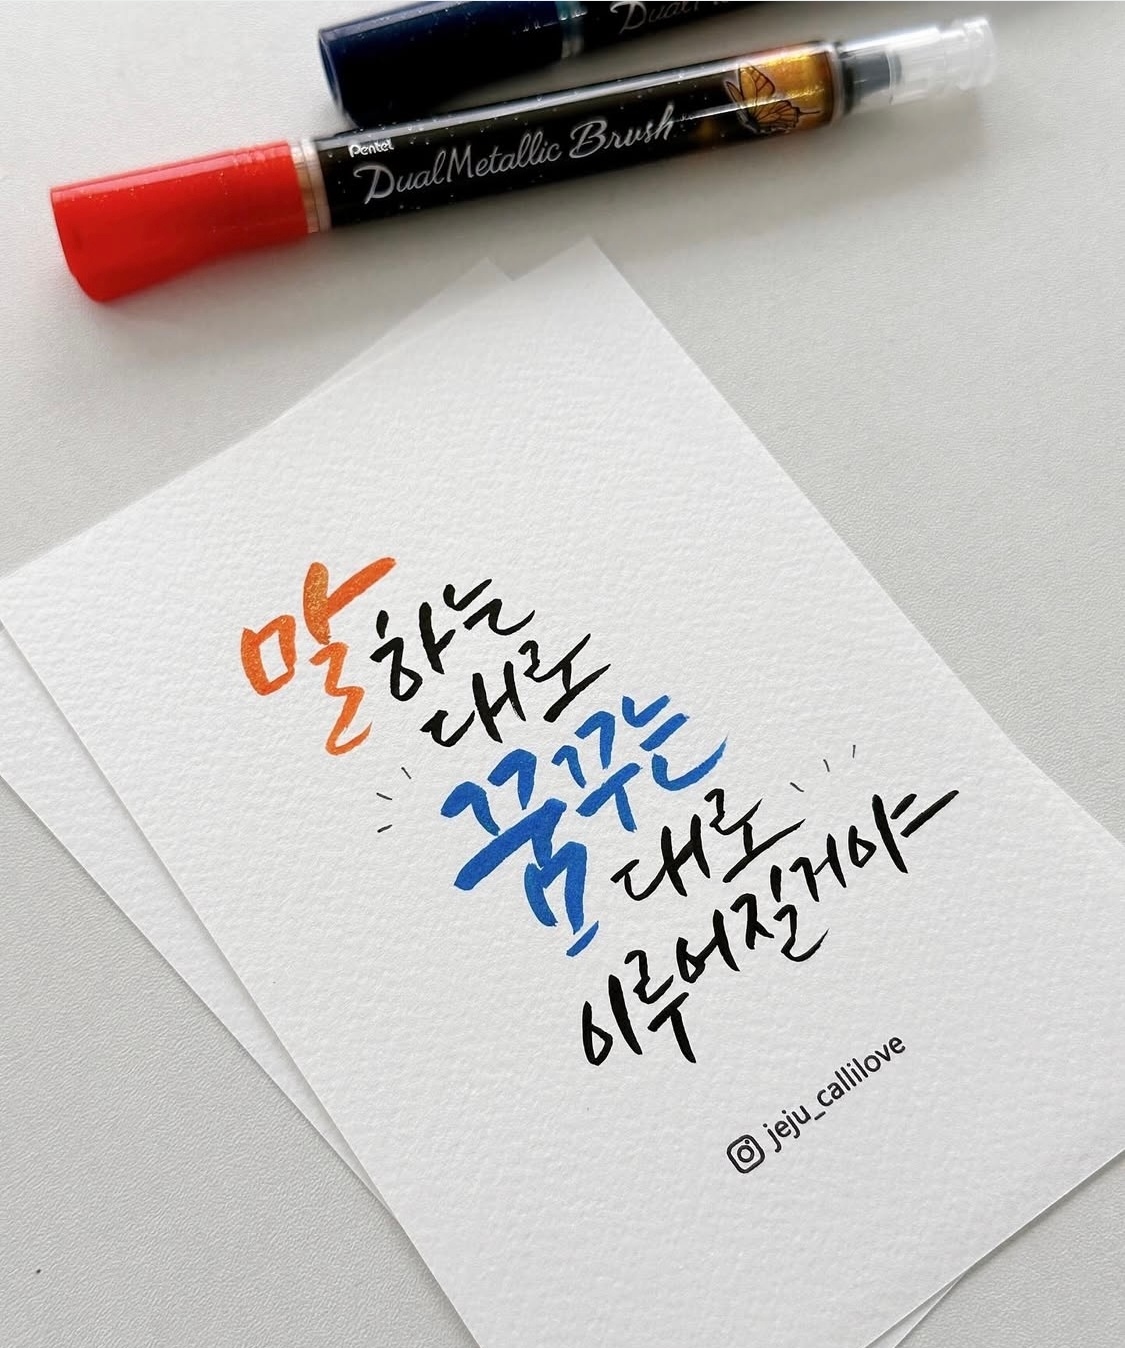 Dual
Pentel
DualMetallic Brush
말하는
대로
꿈꾸는
대로
이루어질거야
jeju_callilove